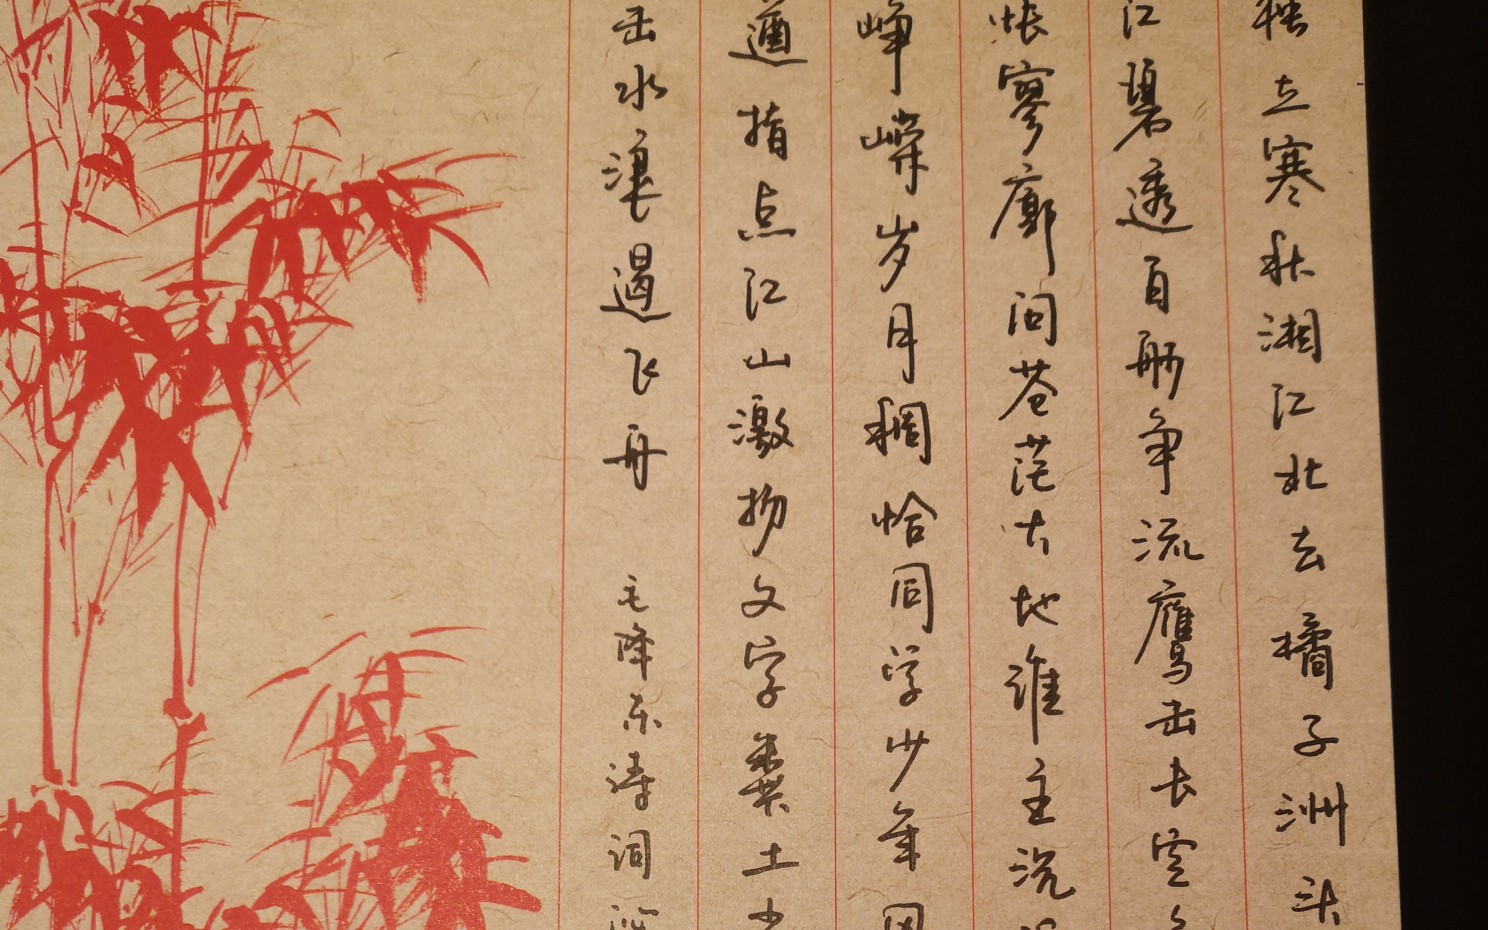 独立寒秋湘江北去橘子洲头
江碧透百舸争流鹰击长空
怅寥廓问苍茫大地谁主沉
峥嵘岁月稠恰同学少年风
遒指点江山激扬文字粪土
击水浪遏飞舟 毛泽东诗词